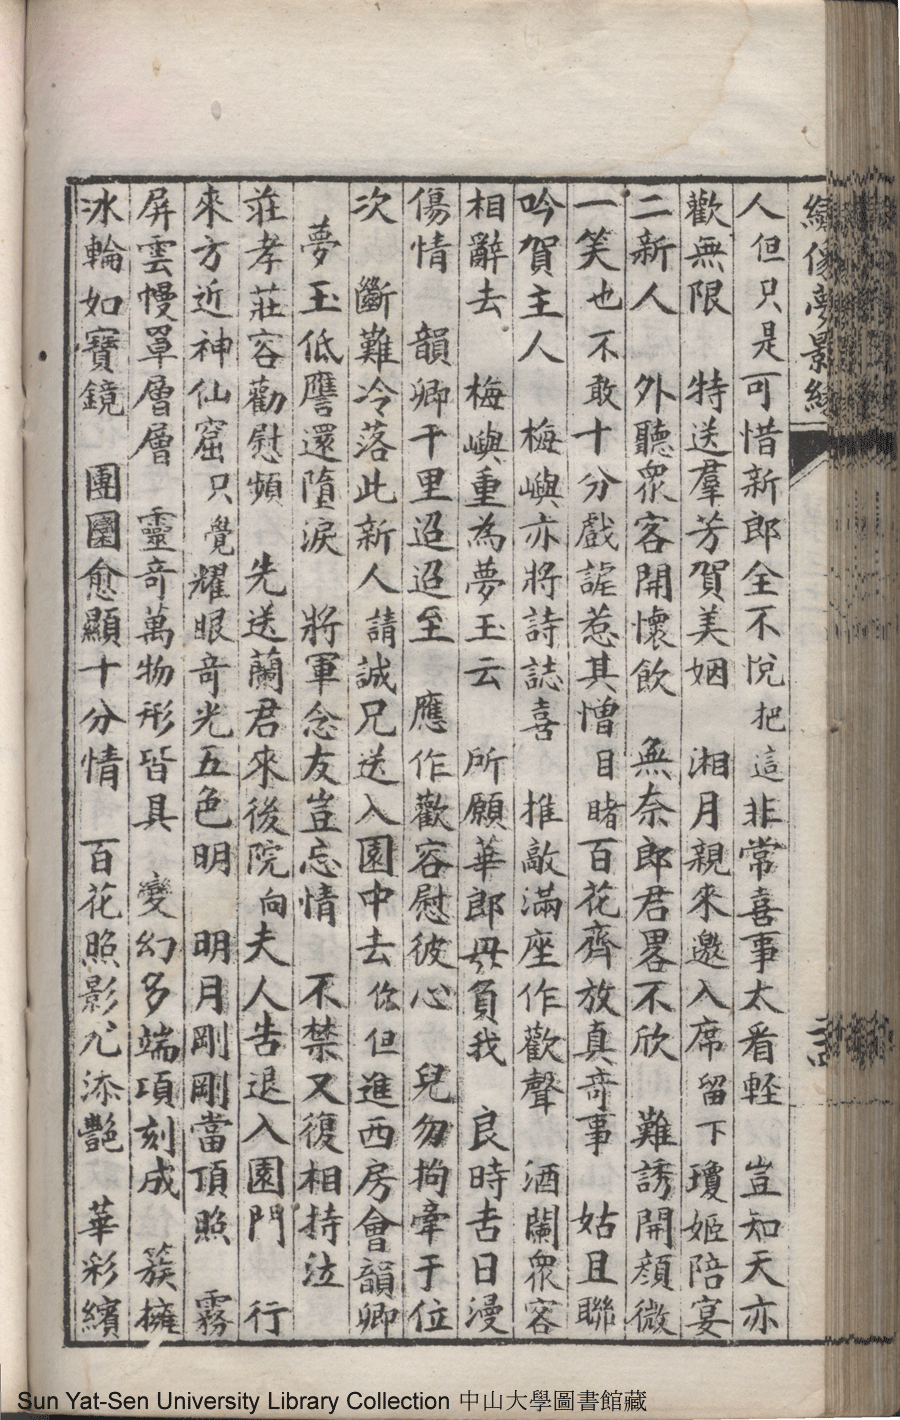 繡像夢影緣
人但只是可惜新郎全不悅把這非常喜事太看輕　豈知天亦
歡無限　特送羣芳賀美姻　湘月親來邀入席留下瓊姬陪宴
二新人　外聽眾客開懷飲　無奈郎君畧不欣　難誘開顏微
一笑也不敢十分戲謔惹其憎目睹百花齊放真奇事　姑且聯
吟賀主人　梅嶼亦將詩誌喜　推敲滿座作歡聲　酒闌眾客
相辭去　梅嶼重為夢玉云　所願華郎毋負我　良時吉日漫
傷情　韻卿千里迢迢至　應作歡容慰彼心　兒勿拘牽于位
次　斷難冷落此新人請誠兄送入園中去你但進西房會韻卿
夢玉低謄還墮淚　將軍念友豈忘情　不禁又復相持泣
莊孝莊容勸慰頻　先送蘭君來後院向夫人告退入園門　行
來方近神仙窟只覺耀眼奇光五色明　明月剛剛當頂照　霧
屏雲幔罩層層　靈奇萬物形皆具　變幻多端項刻成　簇擁
冰輪如寶鏡　團圞愈顯十分情　百花照影尤添艷　華彩繽
Sun Yat-Sen University Library Collection 中山大學圖書館藏